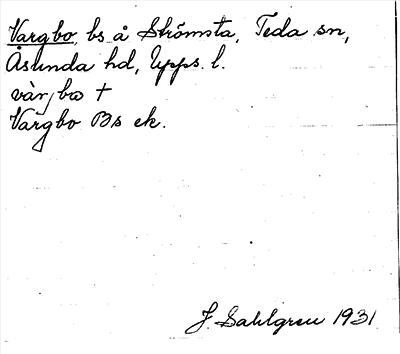 Vargbo, bs å Strömsta, Teda sn,
Åslunda hd, Upps. l.
vàr, bω +
Vargbo Bs ek.
J. Sahlgren 1931